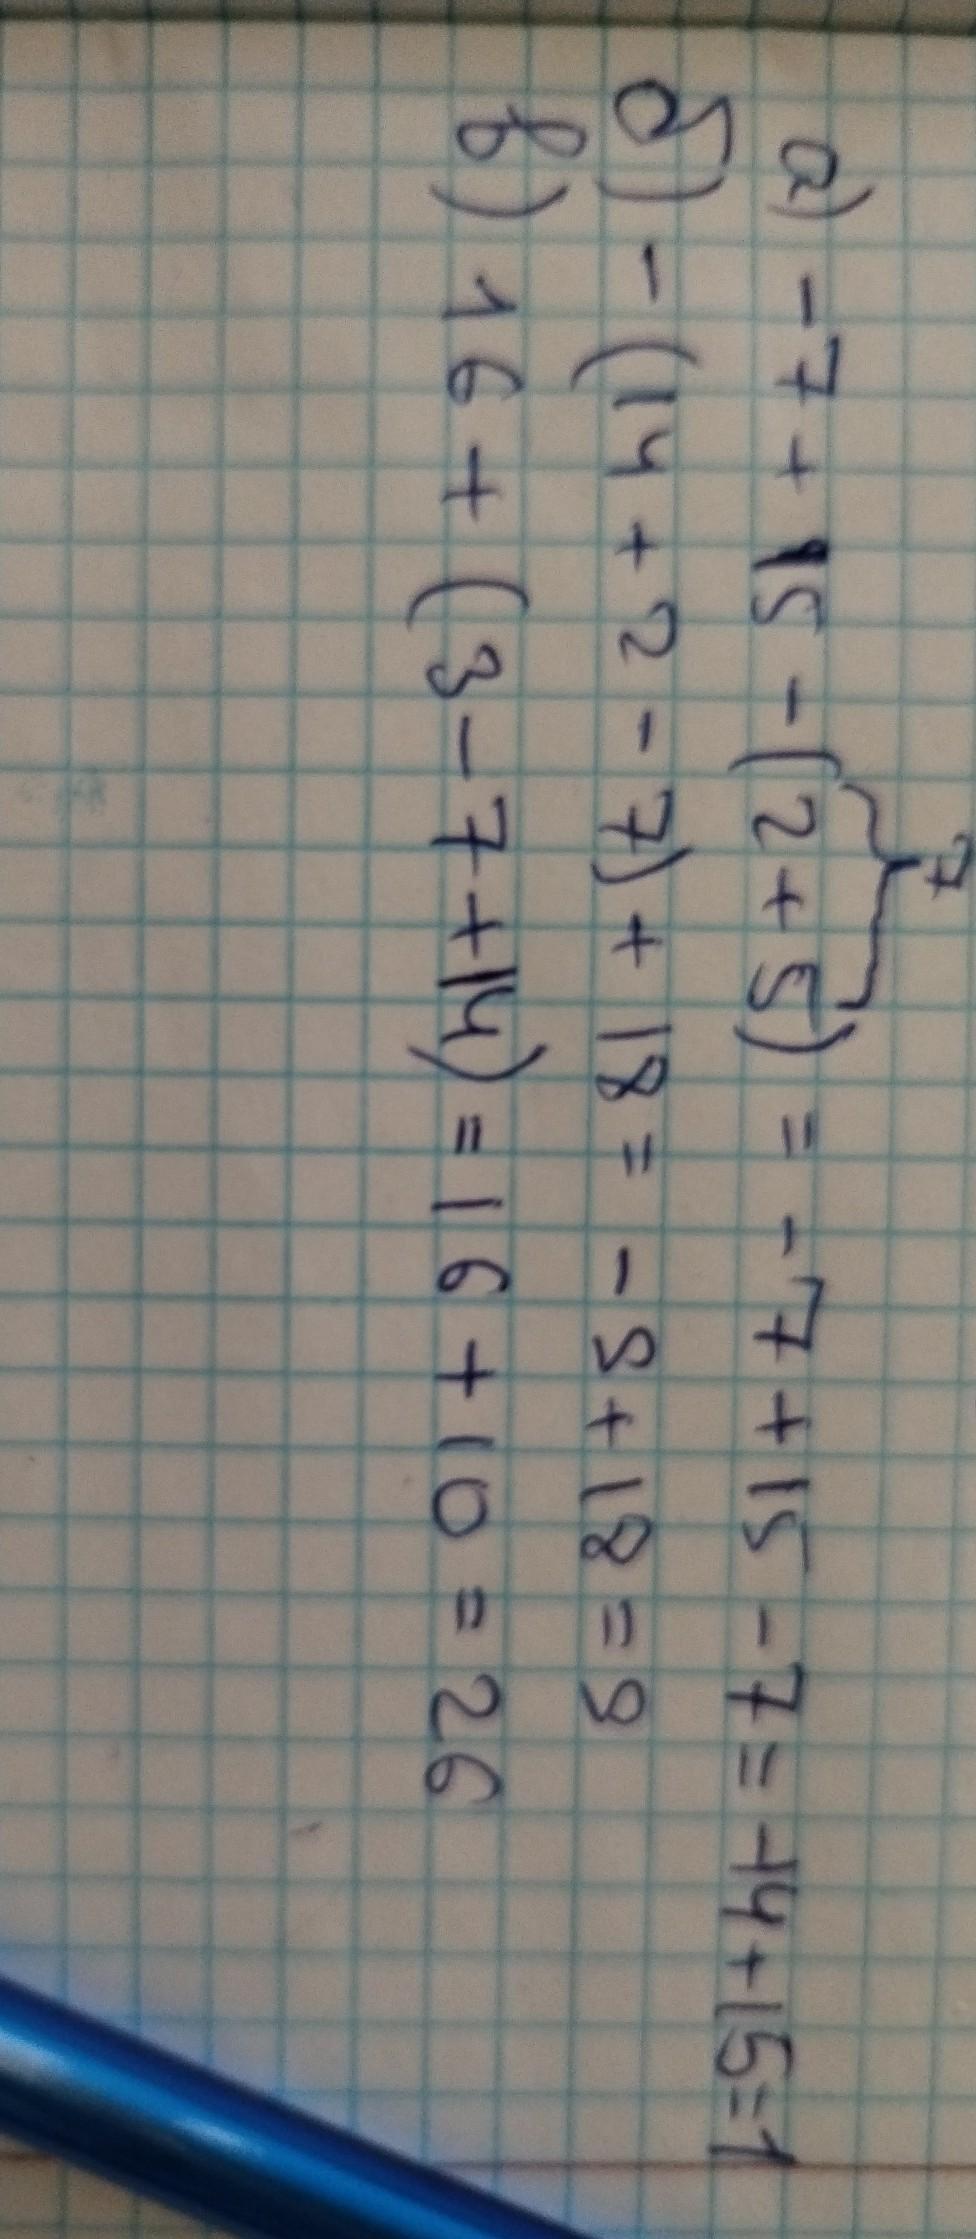 7
а) -7 + 15 - (2 + 5) = -7 + 15 - 7 = -14 + 15 = 1
б) - (14 + 2 - 7) + 18 = -9 + 18 = 9
в) 16 + (3 - 7 + 14) = 16 + 10 = 26